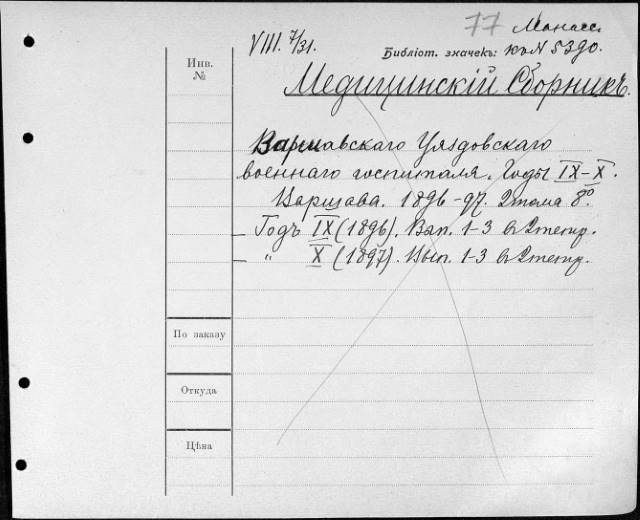 77 Манасс.
VIII. 7/31.
Библіот. значекъ: къ № 5390.
Инв.
№
Медицинскій Сборникъ.
Варшавскаго Уяздовскаго
военнаго госпиталя. Годы IX-X.
Варшава. 1896-97. 2 тома 8º
— Годъ IX (1896). Вып. 1-3 въ 2 тетр.
— „ X (1897). Вып. 1-3 въ 2 тетр.
По заказу
Откуда
Цѣна